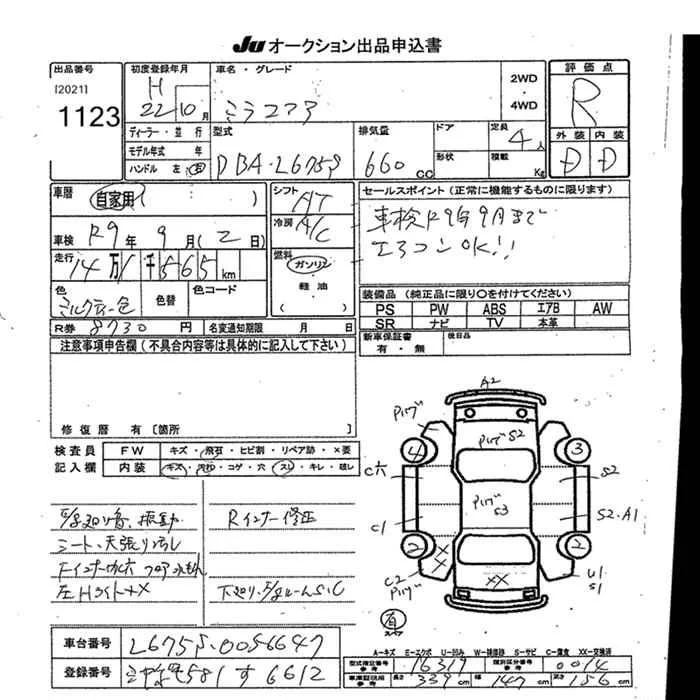 Ju オークション出品申込書
出品番号
[2021]
1123
初度登録年月
H
22 10 月
車名・グレード
ミラココア
2WD
・
4WD
評価点
R
外装 内装
D D
ディーラー・並行
モデル年式 年
ハンドル 左 右
型式
DBA-L675S
排気量
660 cc
ドア
形状
定員
4 人
積載
Kg
車歴
自家用 ( )
車検 R9 年 9 月 ( 2 日)
走行
14 万 1 千 565 km
色
ミルクティー色
色替
色コード
R券 8730 円
名変通知期限 月 日
シフト
AT
冷房
A/C
燃料
ガソリン
軽油
セールスポイント (正常に機能するものに限ります)
車検R9年9月まで
エアコンOK!!
装備品 (純正品に限り○を付けてください)
PS PW ABS エアB AW
SR ナビ TV 本革
新車保証書
有・無
後日品
注意事項申告欄 (不具合内容等は具体的に記入して下さい)
修復歴 有 [箇所
検査員
記入欄
FW キズ・飛石・ヒビ割・リペア跡・×要
内装 キズ・汚れ・コゲ・穴・スレ・キレ・破レ
シート・天張り汚れ
左Hライト+X
Rインナー修正
A2
S2
4 3
C穴
S2
S3
C1
S2・A1
2 2
XX
C2
U1
S1
有
スペア
A=キズ E=エクボ U=凹み W=補修跡 S=サビ C=腐食 XX=交換済
車台番号 L675S-0056647
登録番号 581 す 6612
型式指定番号
参考
16319
類別区分番号
参考
0014
車庫証明用
参考
長さ 339 cm 幅 147 cm 高さ 156 cm